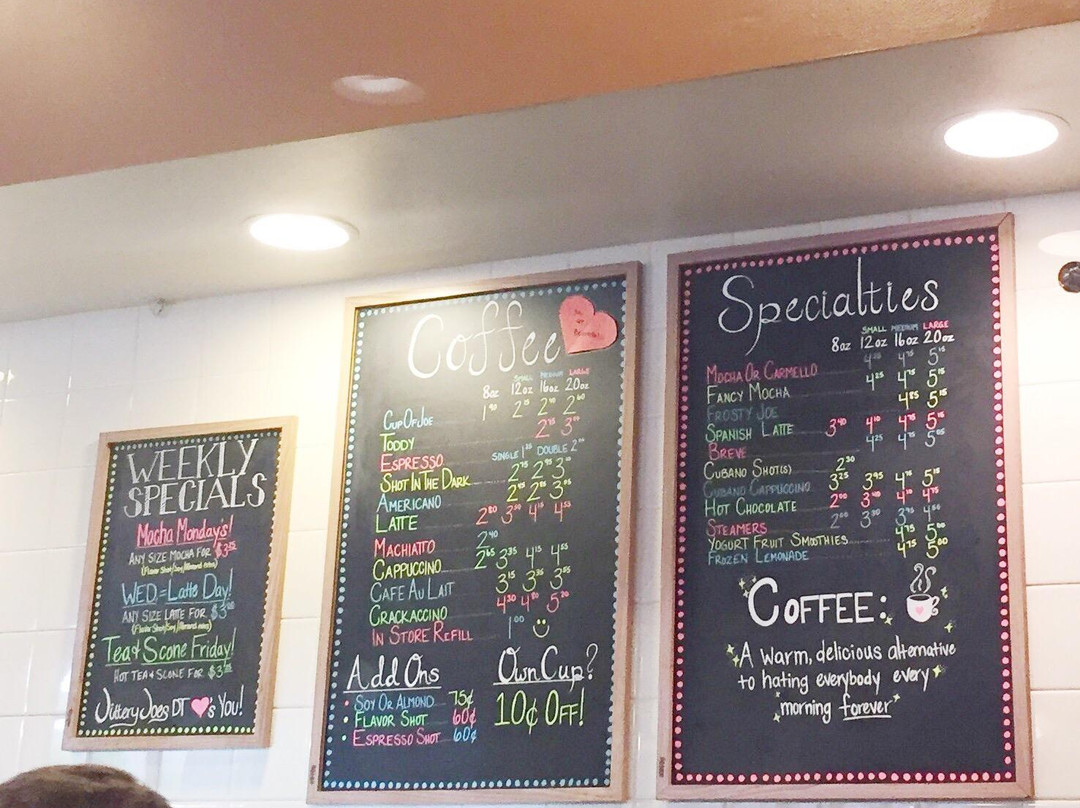 WEEKLY
SPECIALS
Mocha Mondays!
ANY SIZE MOCHA FOR
WED.=Latte Day!
ANY SIZE LATTE FOR $3⁰⁰
Tea & Scone Friday!
HOT TEA & SCONE FOR
Jittery Joe's DT ♥'s You!
Coffee
SMALL MEDIUM LARGE
8oz 12oz 16oz 20oz
CUP OF JOE 2¹⁵ 2⁶⁰
TODDY 2⁹⁵
ESPRESSO SINGLE DOUBLE
SHOT IN THE DARK 2⁷⁵ 2⁹⁵
AMERICANO
LATTE 4¹⁵
MACHIATTO 2⁴⁰
CAPPUCCINO 2⁶⁵ 3³⁵ 4¹⁵ 4⁵⁵
CAFE AU LAIT 3¹⁵ 3³⁵ 3⁵⁵
CRACKACCINO 4³⁰ 4⁸⁰ 5²⁰
IN STORE REFILL 1⁰⁰
Add Ons
• SOY OR ALMOND 75¢
• FLAVOR SHOT 60¢
• ESPRESSO SHOT 60¢
Own Cup?
10¢ OFF!
Specialties
SMALL MEDIUM LARGE
8oz 12oz 16oz 20oz
MOCHA OR CARMELLO 4⁷⁵ 5¹⁵
FANCY MOCHA 4²⁵ 4⁷⁵ 5¹⁵
FROSTY JOE 4⁸⁵ 5¹⁵
SPANISH LATTE 3⁴⁰ 4¹⁰ 4⁷⁵ 5¹⁵
BREVE 4²⁵ 4⁷⁵ 5⁰⁵
CUBANO SHOT(S) 2³⁰
CUBANO CAPPUCCINO 3²⁵ 3⁹⁵ 4⁷⁵ 5¹⁵
HOT CHOCOLATE 4¹⁰
STEAMERS 2⁰⁰ 3⁹⁵
YOGURT FRUIT SMOOTHIES 4⁷⁵ 5⁰⁰
FROZEN LEMONADE 4⁷⁵ 5⁰⁰
COFFEE:
A warm, delicious alternative
to hating everybody every
morning forever